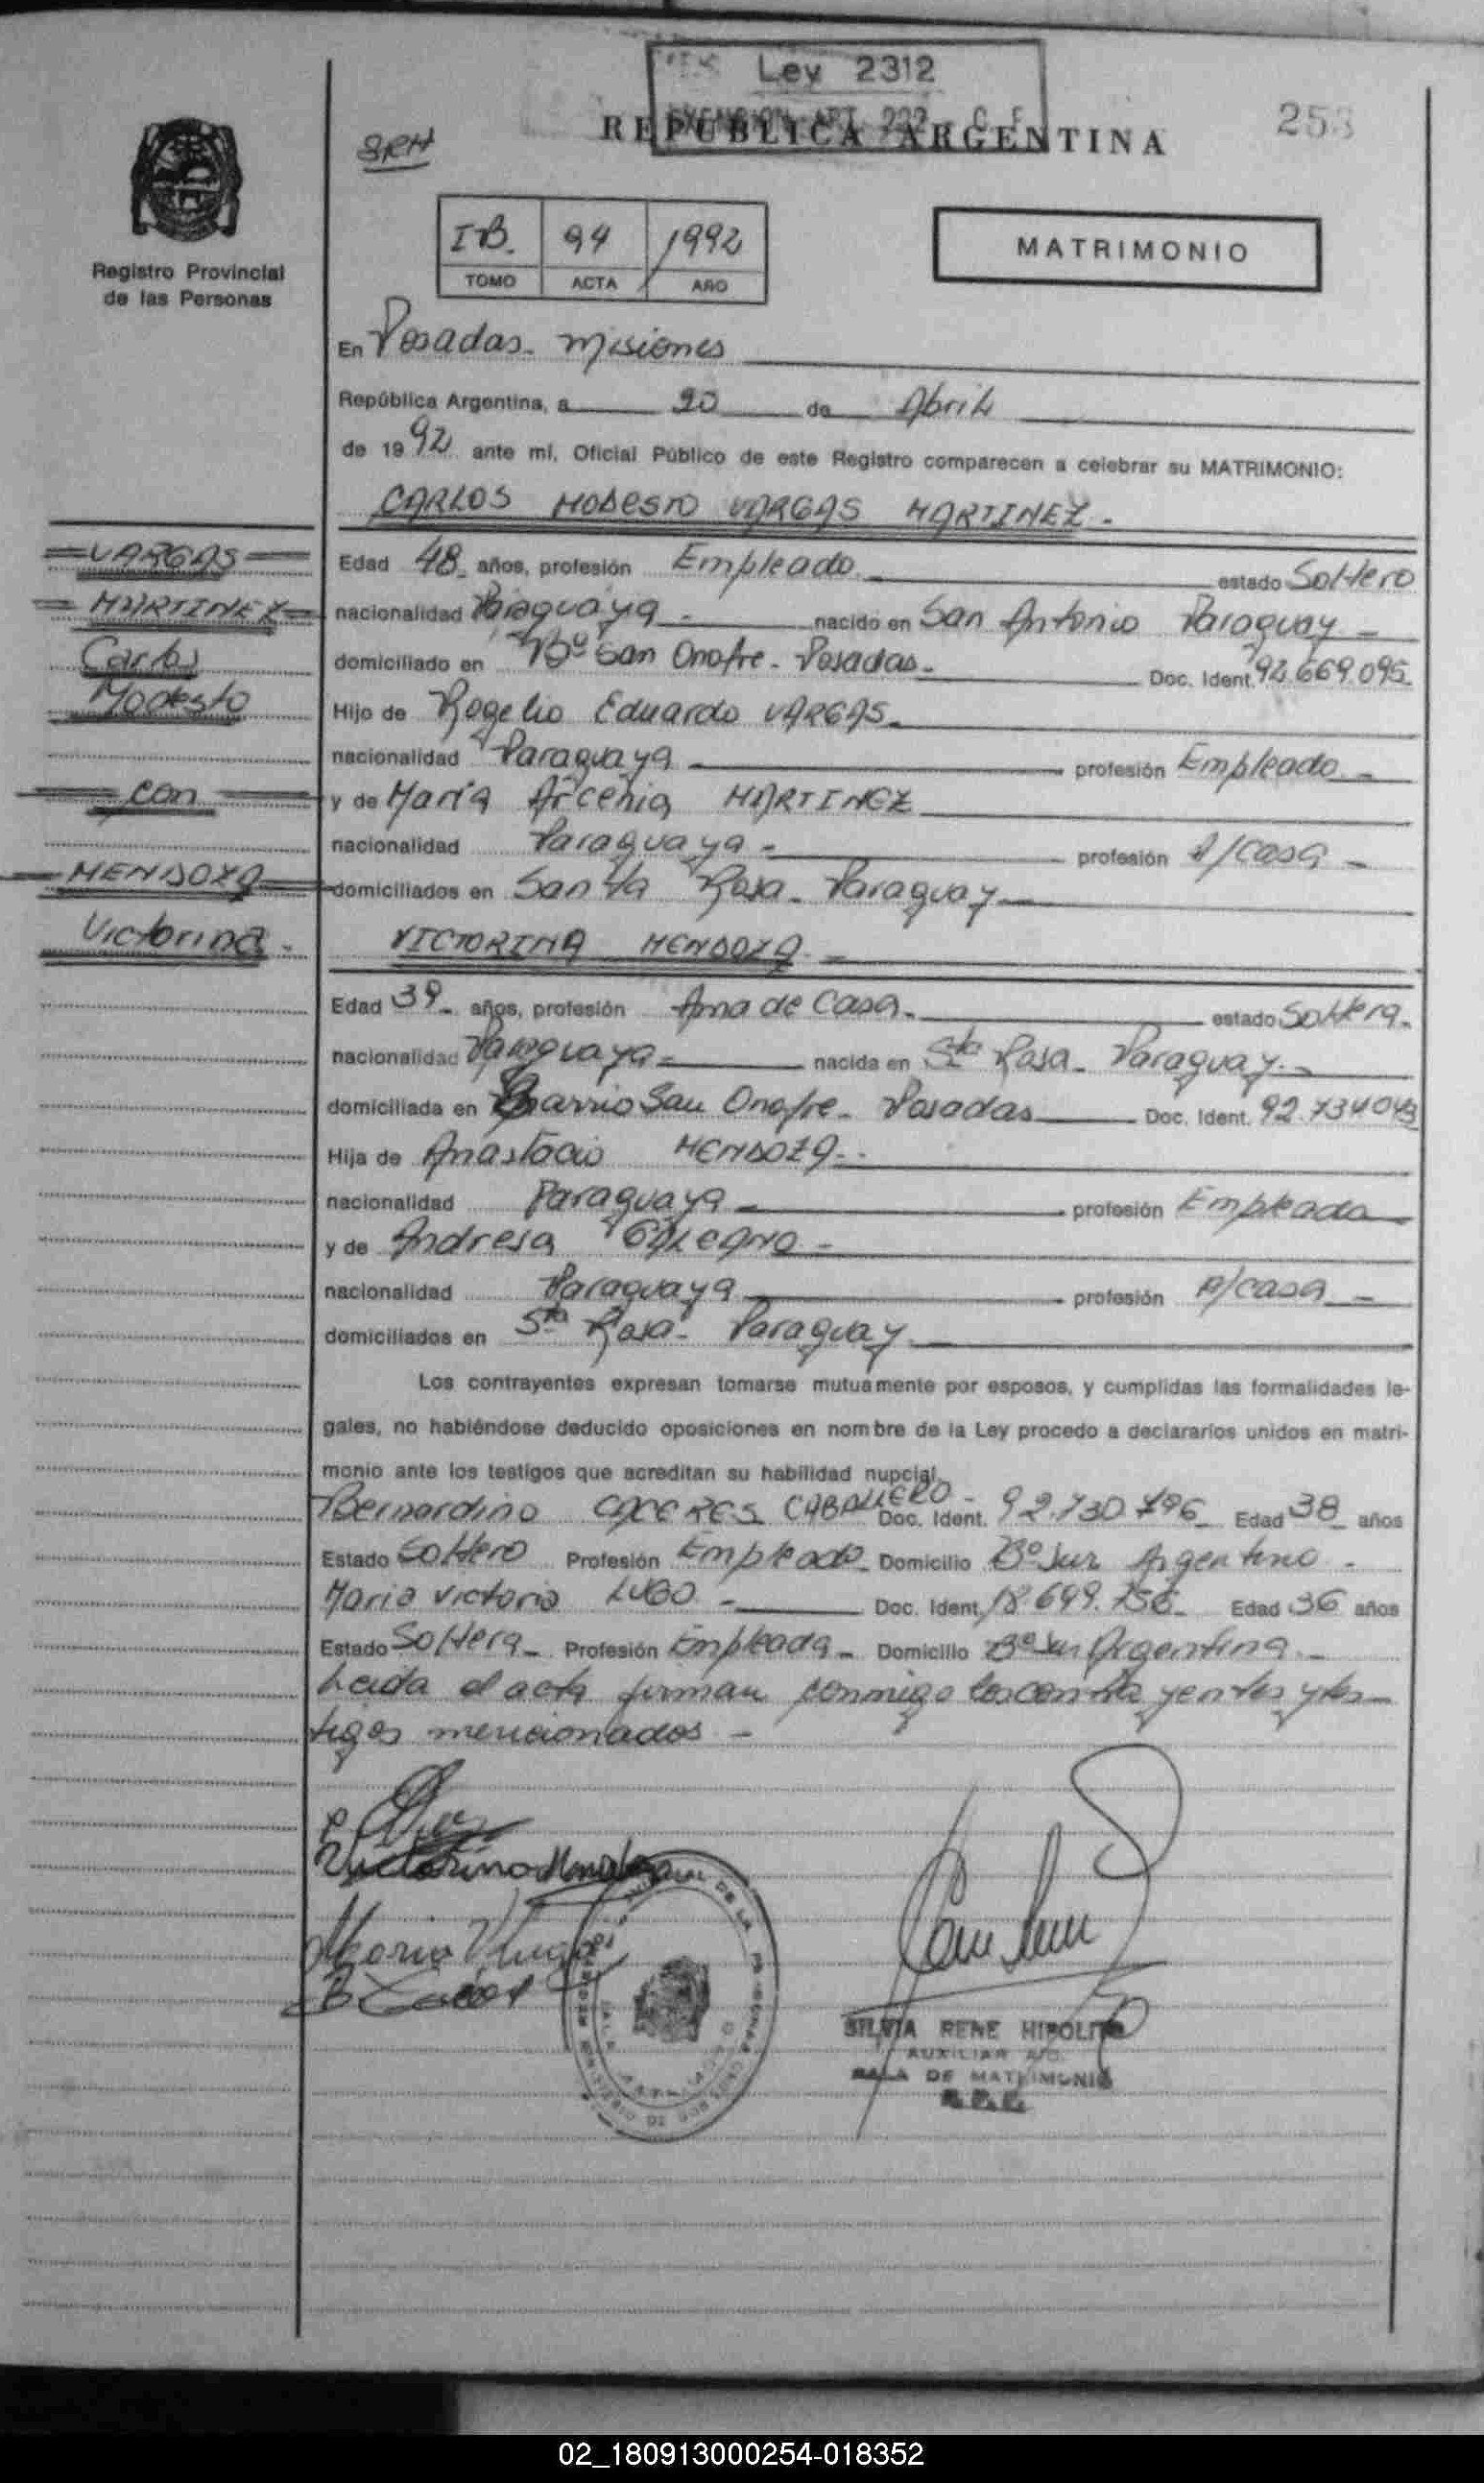 Ley 2312
EXENCION ART 222 C. F.
REPUBLICA ARGENTINA
253
SRH
Registro Provincial
de las Personas
IB. 94 1992
TOMO ACTA AÑO
MATRIMONIO
En Posadas - Misiones
República Argentina, a 20 de Abril
de 1992 ante mí, Oficial Público de este Registro comparecen a celebrar su MATRIMONIO:
CARLOS MODESTO VARGAS MARTINEZ.-
VARGAS
MARTINEZ
Carlos
Modesto
con
MENDOZA
Victorina -
Edad 48 años, profesión Empleado estado Soltero
nacionalidad Paraguaya - nacido en San Antonio Paraguay -
domiciliado en Bº San Onofre - Posadas - Doc. Ident. 92.669.095.
Hijo de Rogelio Eduardo VARGAS -
nacionalidad Paraguaya profesión Empleado -
y de María Arcenia MARTINEZ
nacionalidad Paraguaya - profesión A/casa -
domiciliados en Santa Rosa - Paraguay
VICTORINA MENDOZA -
Edad 39 años, profesión Ama de Casa - estado Soltera.
nacionalidad Paraguaya - nacida en Sta Rosa - Paraguay -
domiciliada en Barrio San Onofre - Posadas Doc. Ident. 92.734043
Hija de Anastacio MENDOZA -
nacionalidad Paraguaya profesión Empleado
y de Andresa -
nacionalidad Paraguaya profesión A/casa -
domiciliados en Sta Rosa - Paraguay
Los contrayentes expresan tomarse mutuamente por esposos, y cumplidas las formalidades le-
gales, no habiéndose deducido oposiciones en nombre de la Ley procedo a declararlos unidos en matri-
monio ante los testigos que acreditan su habilidad nupcial.
Bernardino CACERES CABALLERO - Doc. Ident. 92.730.796 Edad 38 años
Estado Soltero Profesión Empleado Domicilio Bº Sur Argentino -
Maria Victoria LUGO - Doc. Ident. 18.699.756 Edad 36 años
Estado Soltera - Profesión Empleada - Domicilio Bº Sur Argentina -
Leida el acta firman conmigo los contrayentes y tes-
tigos mencionados -
Victorina Mendoza
Maria V Lugo
B Caceres
SILVIA RENE HIPOLITO
AUXILIAR A/C.
SALA DE MATRIMONIO
R.P.P.
02_180913000254-018352